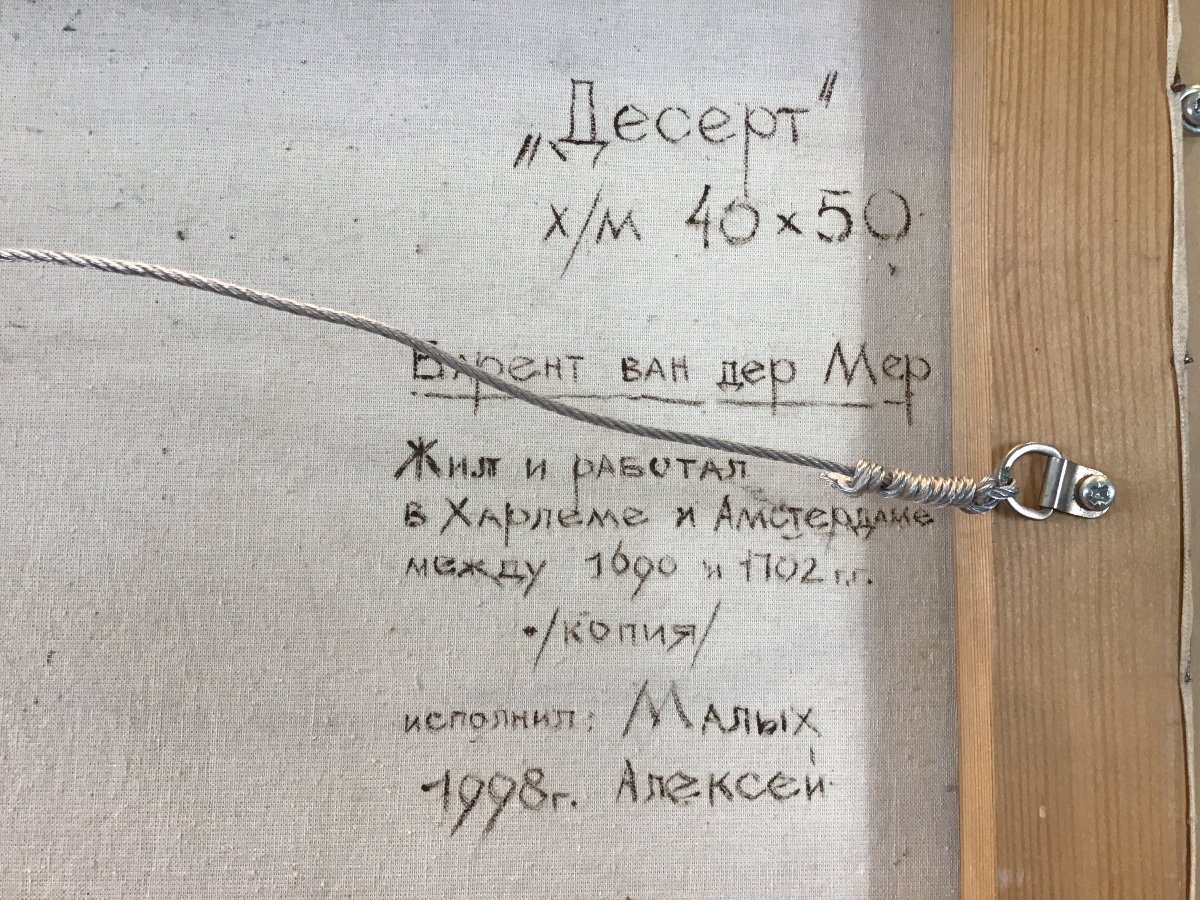 „Десерт"
х/м 40×50
Барент ван дер Мер
Жил и работал
в Харлеме и Амстердаме
между 1690 и 1702 г.г.
/копия/
исполнил: Малых
1998г. Алексей